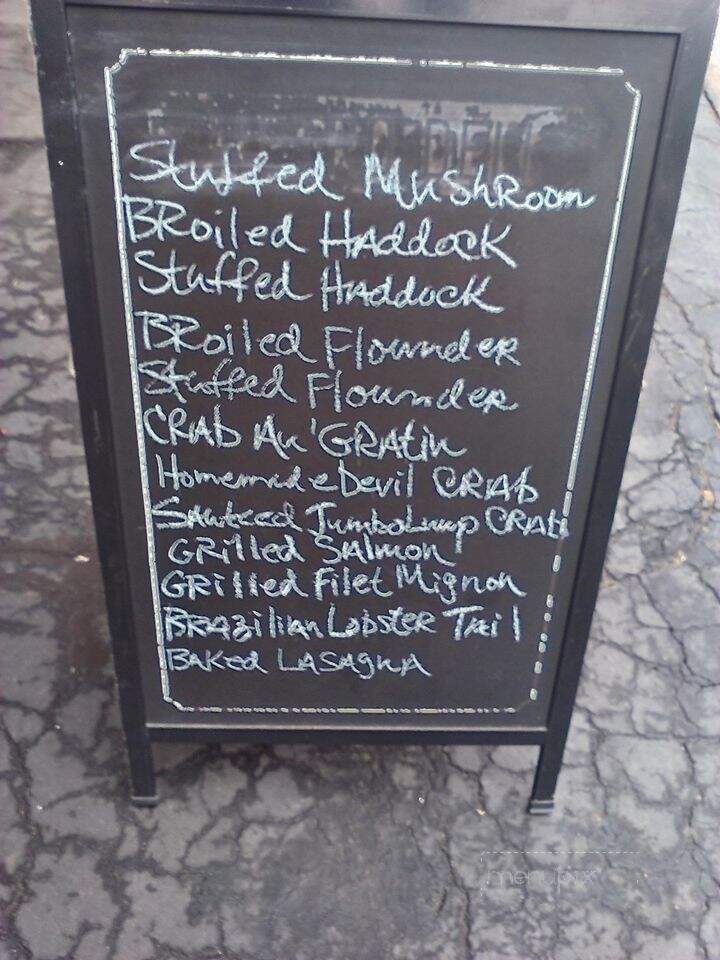 Stuffed MushRoom
BRoiled HAddock
Stuffed HAddock
BRoiled Flounder
Stuffed Flounder
CRAb Au 'GRAtin
Homemade Devil CRAb
SAuteed JumboLump CRAb
GRilled SAlmon
GRilled Filet Mignon
BRAzilian LobsteR TAil
BAKed LASAgNA
menupix